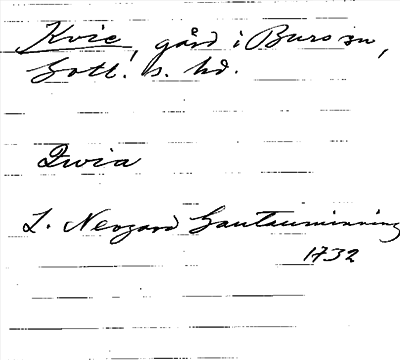 Kvie, gård i Burs sn,
Gotl. s. hd.
Qvia
L. Neogard Gautauminning
1732